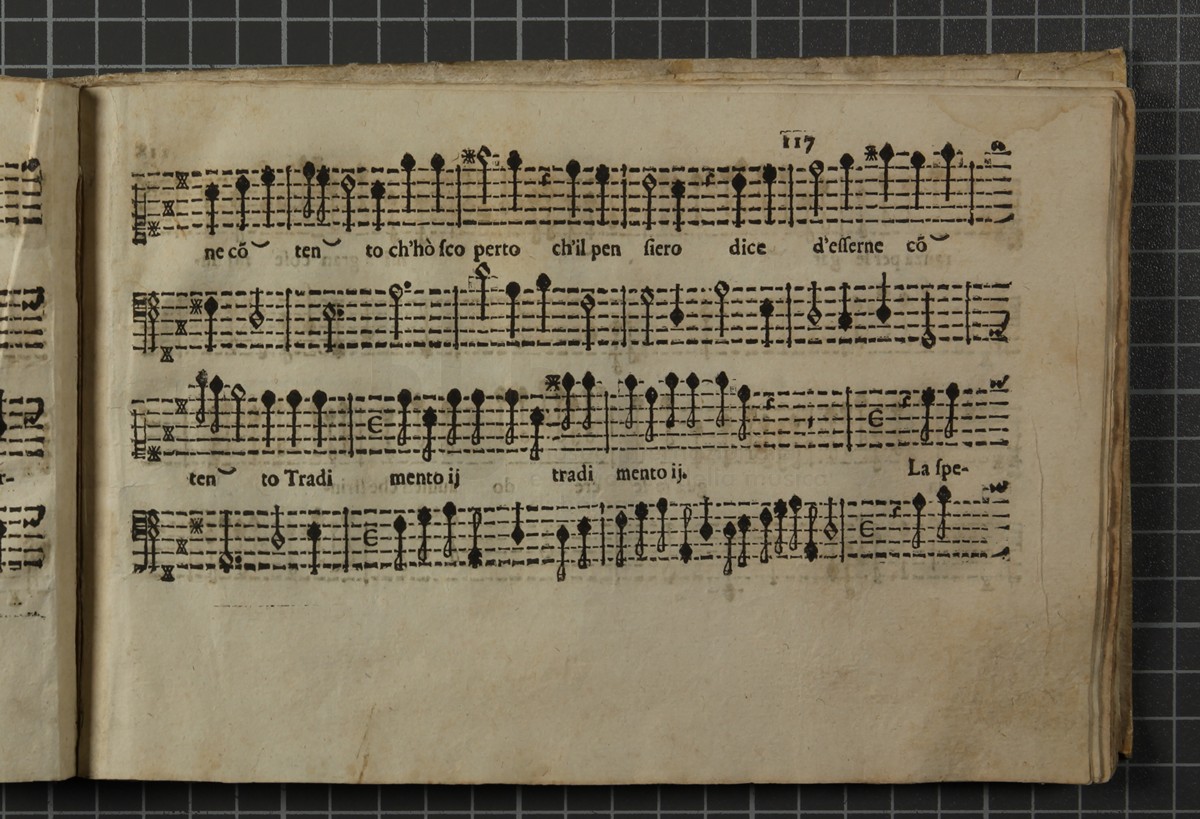 117
ne cõ ten to ch'hò ſco perto ch'il pen ſiero dice d'eſſerne cõ
ten to Tradi mento ij tradi mento ij. La ſpe-
r-